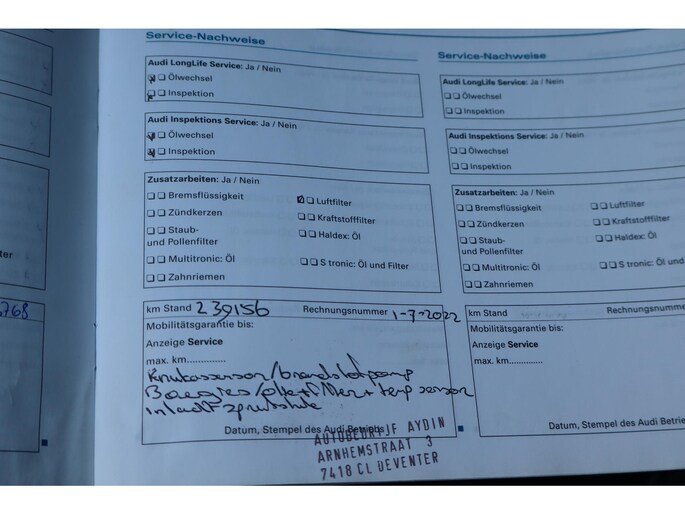 Service-Nachweise
Audi LongLife Service: Ja / Nein
Ölwechsel
Inspektion
Audi Inspektions Service: Ja / Nein
Ölwechsel
Inspektion
Zusatzarbeiten: Ja / Nein
Bremsflüssigkeit
Luftfilter
Zündkerzen
Kraftstofffilter
Staub-
und Pollenfilter
Haldex: Öl
Multitronic: Öl
S tronic: Öl und Filter
Zahnriemen
km Stand 239156 Rechnungsnummer 1-7-2022
Mobilitätsgarantie bis:
Anzeige Service
max. km..............
Krukassensor/brandstofpomp
Bougies/ + temp sensor
Datum, Stempel des Audi Betriebs
AUTOBEDRIJF AYDIN
ARNHEMSTRAAT 3
7418 CL DEVENTER
Service-Nachweise
Audi LongLife Service: Ja / Nein
Ölwechsel
Inspektion
Audi Inspektions Service: Ja / Nein
Ölwechsel
Inspektion
Zusatzarbeiten: Ja / Nein
Bremsflüssigkeit
Luftfilter
Zündkerzen
Kraftstofffilter
Staub-
und Pollenfilter
Haldex: Öl
Multitronic: Öl
S tronic: Öl und Filter
Zahnriemen
km Stand Rechnungsnummer
Mobilitätsgarantie bis:
Anzeige Service
max. km..............
Datum, Stempel des Audi
ter
768